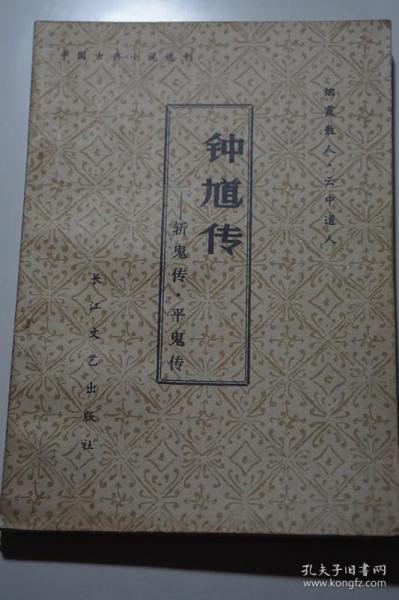 中国古典小说选刊
烟霞散人 云中道人
钟馗传
——斩鬼传·平鬼传
长江文艺出版社
孔夫子旧书网
www.kongfz.com